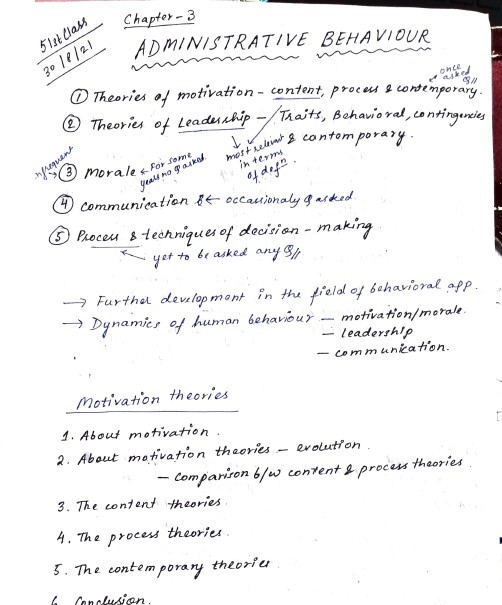 51st Class
30/8/21
Chapter-3
ADMINISTRATIVE BEHAVIOUR
① Theories of motivation - content, process & contemporary.
once asked Q//
② Theories of Leadership - Traits, Behavioral, contingencies
& contomporary.
most relevant in terms of defn
infrequent
③ Morale ← For some years no Q asked.
④ communication ← occasionaly Q asked
⑤ Process & techniques of decision - making
yet to be asked any Q//
→ Further development in the field of behavioral app.
→ Dynamics of human behaviour — motivation/morale.
— leadership
— communication.
Motivation theories
1. About motivation.
2. About motivation theories — evolution.
— comparison b/w content & process theories
3. The content theories.
4. The process theories.
5. The contemporary theories
6. Conclusion.